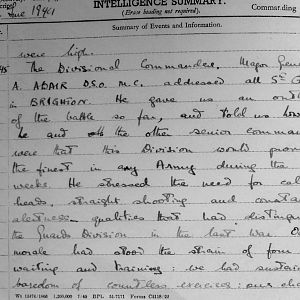 INTELLIGENCE SUMMARY.
(Erase heading not required).
Commanding
Summary of Events and Information.
were high.
The Divisional Commander, Major Gene
A. ADAIR D.S.O. M.C. addressed all 5th G
in BRIGHTON. He gave us an
of the battle so far, and told us how
he and the other senior comman
were that this Division would prove
the finest in any Army during the
weeks. He stressed the need for cal
heads, straight shooting and consta
alertness - qualities that had disting
the Guards Division in the last war. Ou
morale had stood the strain of four
waiting and training: we had sustain
boredom of countless exercises: our